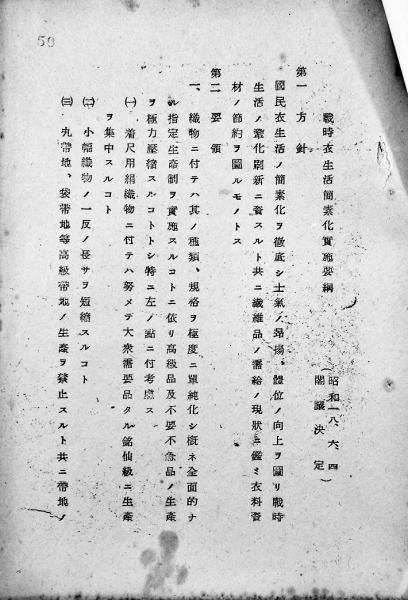 50
戰時衣生活簡素化實施要綱
（昭和一八、六、四
閣議決定）
第一 方針
國民衣生活ノ簡素化ヲ徹底シ士氣ノ昂揚、體位ノ向上ヲ圖リ戰時
生活ノ簞化刷新ニ資スルト共ニ纖維品ノ需給ノ現狀ニ鑑ミ衣料資
材ノ節約ヲ圖ルモノトス
第二 要領
一、織物ニ付テハ其ノ種類、規格ヲ極度ニ單純化シ槪ネ全面的ナ
ル指定生產制ヲ實施スルコトニ依リ高級品及不要不急品ノ生產
ヲ極力壓縮スルコトトシ特ニ左ノ點ニ付考慮ス
㈠ 着尺用絹織物ニ付テハ努メテ大衆需要品タル銘仙級ニ生產
ヲ集中スルコト
㈡ 小幅織物ノ一反ノ長サヲ短縮スルコト
㈢ 丸帶地、袋帶地等高級帶地ノ生產ヲ禁止スルト共ニ帶地ノ